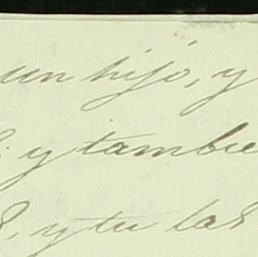 un hijo, y
; y tambie
, y tu las